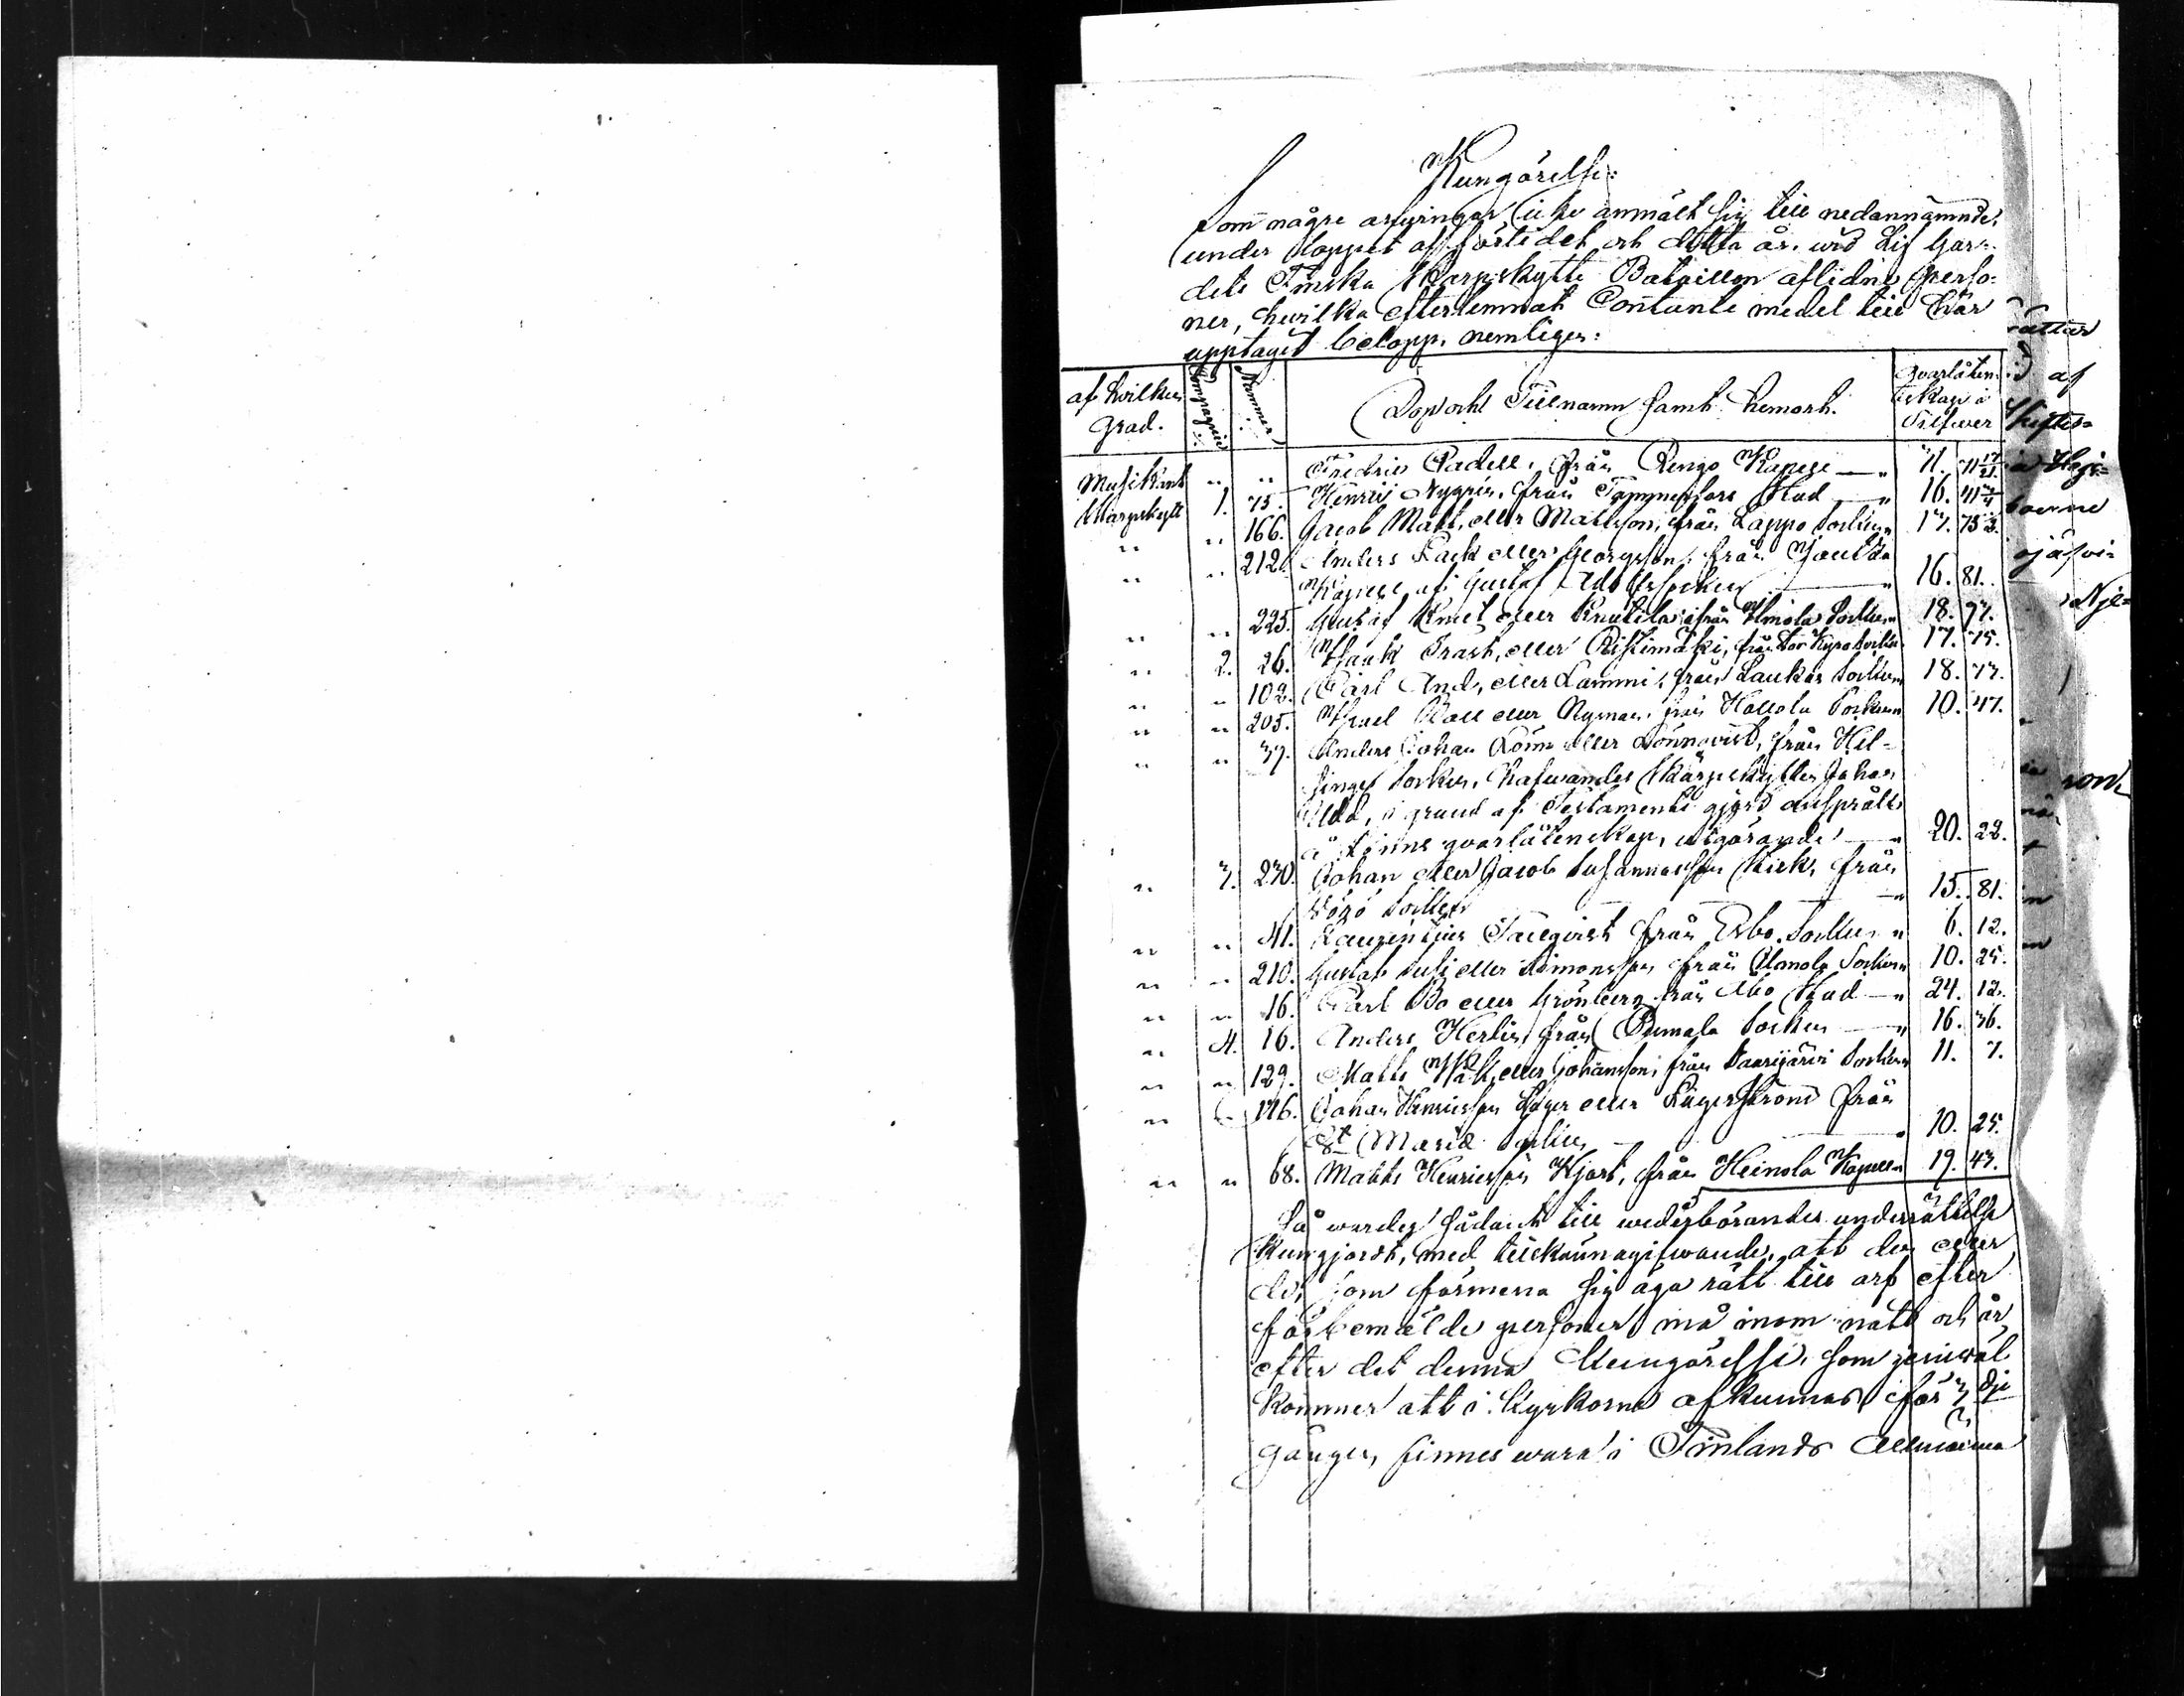 Kungörelse:
Som någre arfwingar icke anmält sig till nedannämnde,
under loppet af förledet och detta år wid Lif Gar-
dets Finska Skarpskytte Bataillon aflidne perso-
ner, hwilka efterlemnat Contante medel till här
upptaget belopp, nemligen:
af hvilken Grad. Compagnie Nummer Dop och Tillnamn samt hemort. Qvarlåtenskap i Silfwer
Musikant " " Fredric Radell, från Rengo Kapell — " 11. 11 17/21
Skarpskytt 1. 75. Henric Nygrén, från Tammerfors Stad — " 16. 41
" " 166. Jacob Matt, eller Mattsson, från Lappo Socken " 17. 75
" " 212. Anders Lack eller Georgsson, från
Kapell af Gustaf Adolfs Socken — " 16. 81.
" " 225. Gustaf Knut eller Knutila från Ilmola Socken " 18. 97.
" 2. 26. Isaak Trast, eller Ristimäki, från Stor Kyro Socken 17. 75.
" " 102. Carl And, eller Lammi, från Laukas Socken 18. 73.
" " 205. Nyman, från Hollola Socken 10. 47.
" " 37. Anders Johan Lönn eller Lönnqvist, från Hel-
singe Socken, hafwandes Skarpskytten Johan
Udd, i grund af Testamente gjord anspråk
å Lönns qvarlåtenskap, utgörande — " 20. 22.
" 3. 230. Johan eller Jacob Susannasson Kiek, från
Wörå Socken — " 15. 81.
" " 41. Laurentius Tallqvist från Esbo Socken " 6. 12.
" " 210. Gustaf Susi eller Simonsson från Ilmola Socken " 10. 25.
" " 16. Carl Bo eller Grönberg från Åbo Stad — " 24. 12.
" 4. 16. Anders Herlin, från Pumala Socken — " 16. 36.
" " 129. Matts Wall, eller Johansson, från Saarijärvi Socken 11. 7.
" " 176. Johan Henricsson Lager eller Lagerström från
St Mariæ Socken — " 10. 25.
" " 68. Matts Henricsson Hjort, från Heinola Kapell " 19. 43.
Så warder sådant till wederbörandes underrättelse
kungjordt, med tillkännagifwande, att den eller
de, som förmena sig äga rätt till arf efter
förbemälde personer må inom natt och år,
efter det denna Kungörelse, som jemwäl
kommer att i Kyrkorne afkunnas för 3 dje
gången, finnes wara i Finlands Allmänna